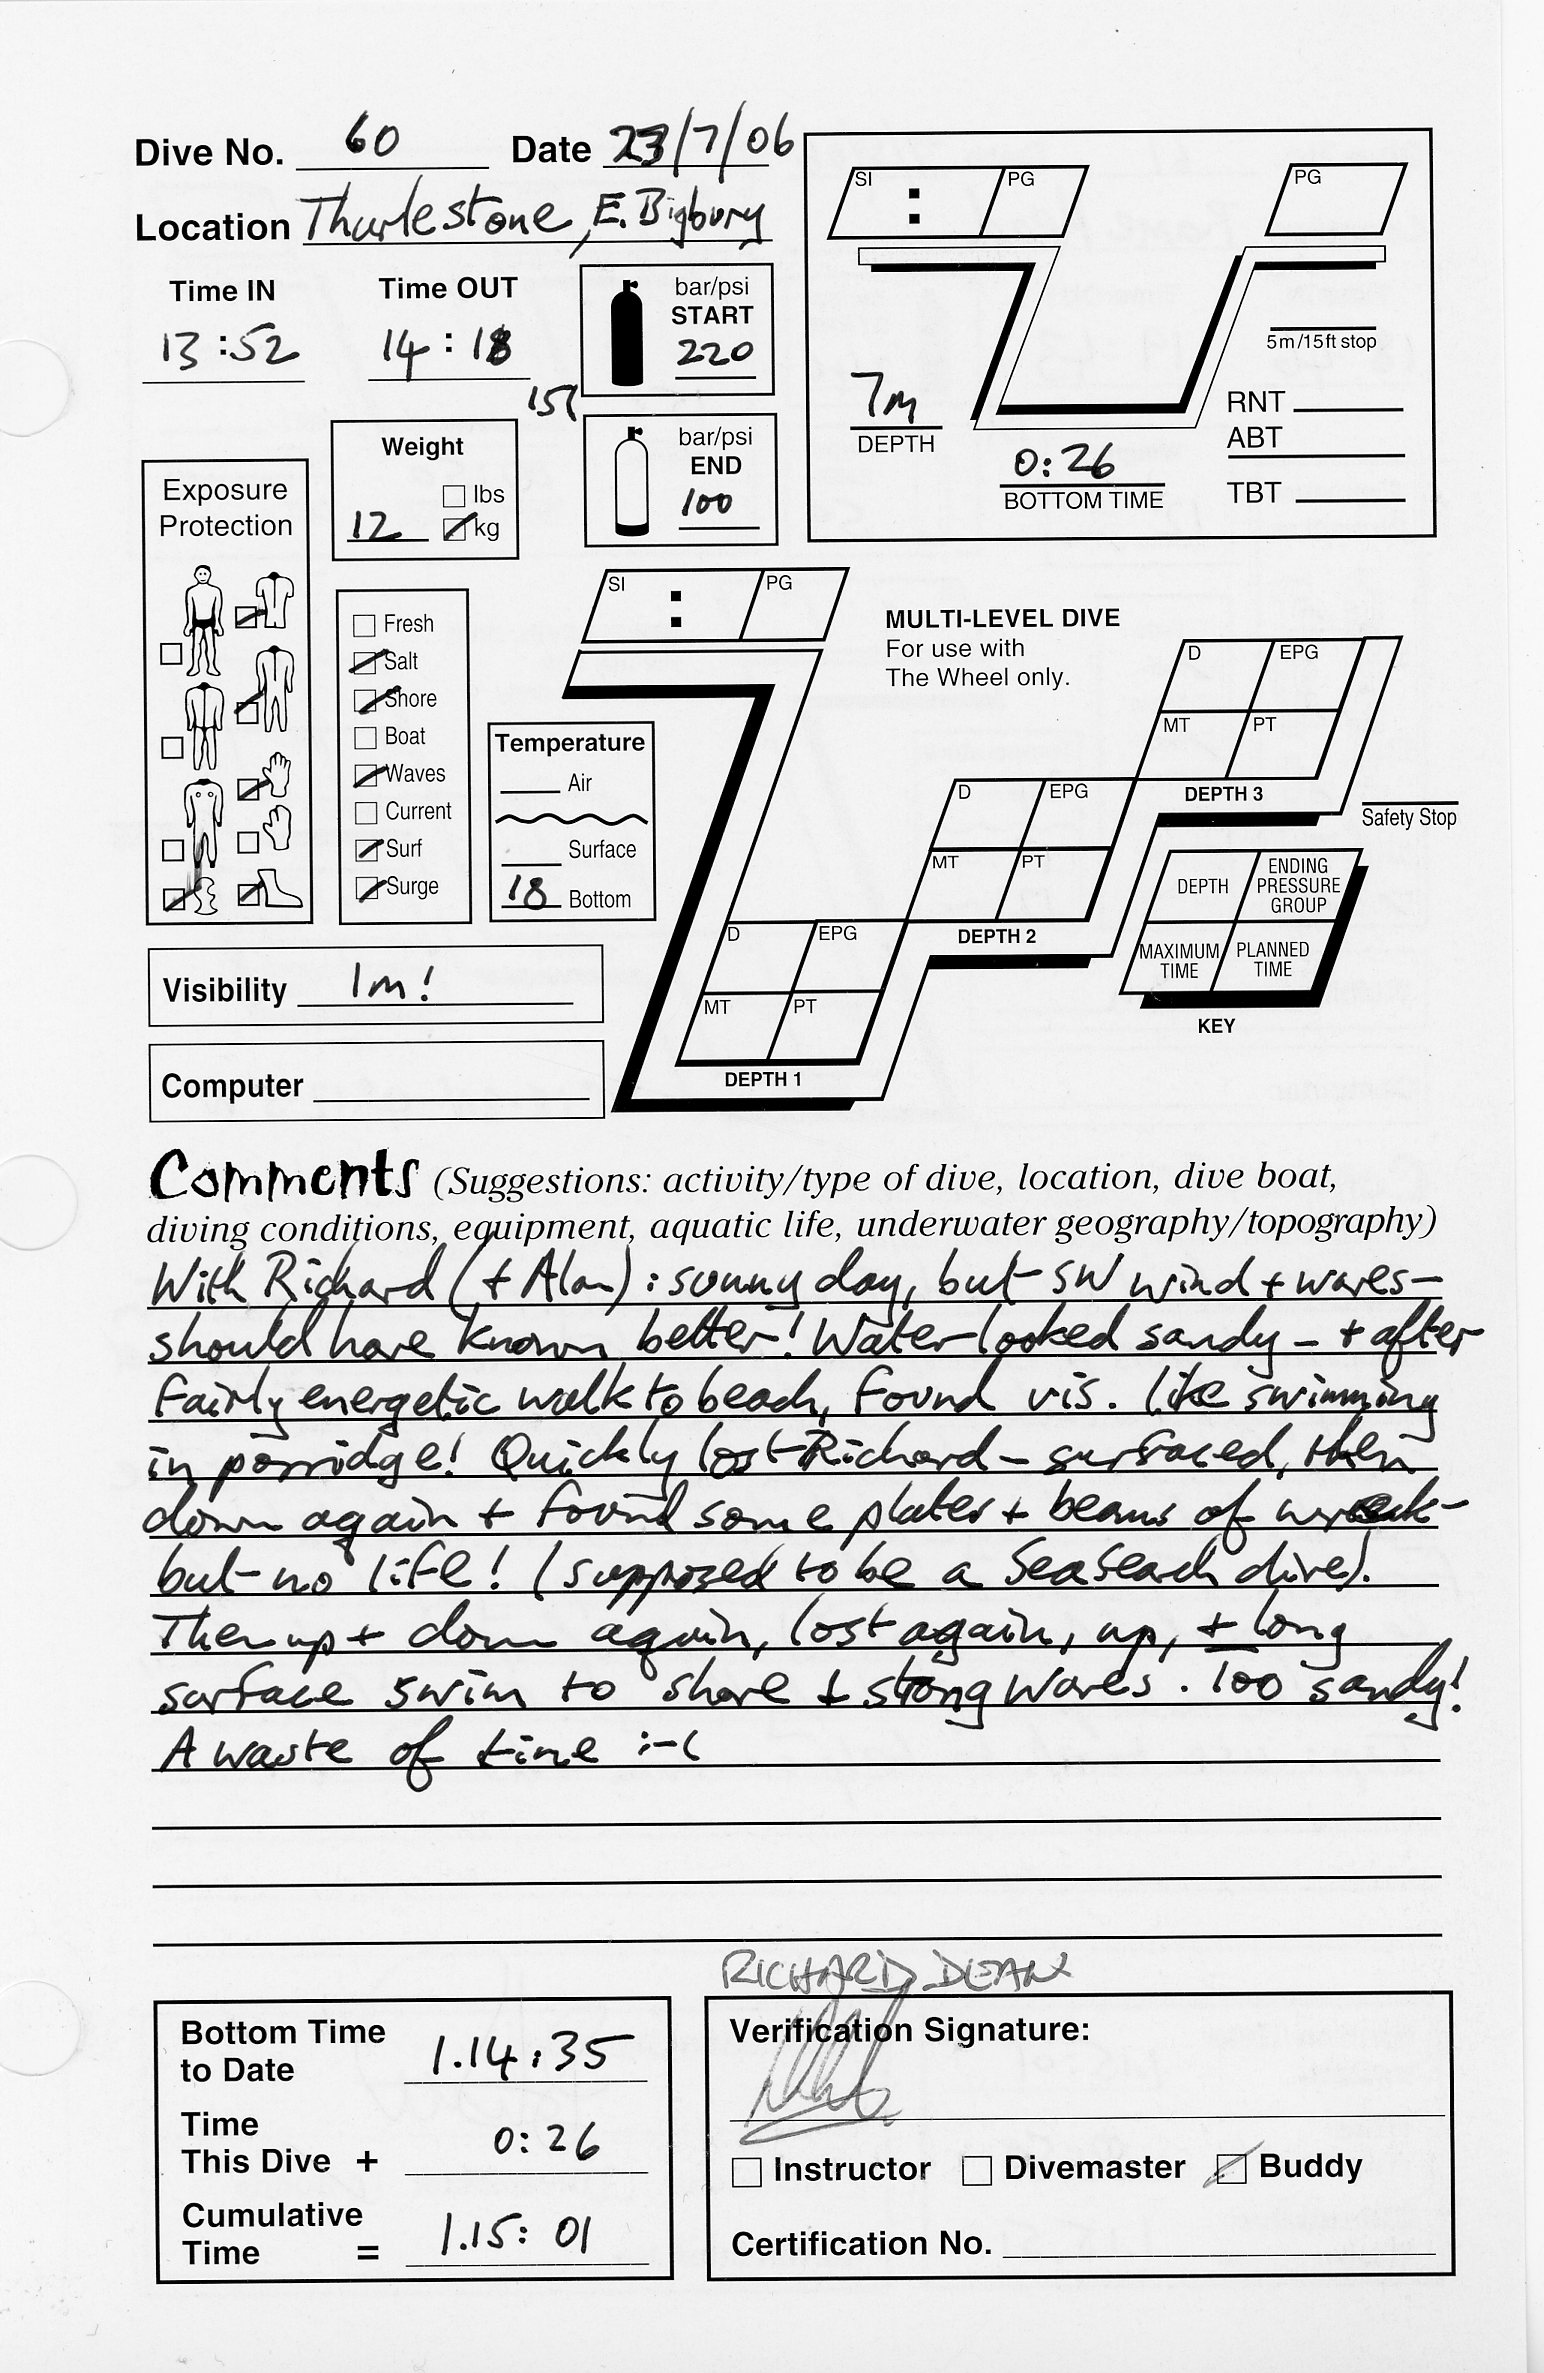 Dive No. 60 Date 23/7/06
Location Thurlestone, E. Bigbury
SI : PG
PG
Time IN Time OUT
13:52 14:18
bar/psi
START
220
15l
bar/psi
END
100
5m/15ft stop
7m
DEPTH
0:26
BOTTOM TIME
RNT
ABT
TBT
Weight
lbs
12 kg
Exposure
Protection
Fresh
Salt
Shore
Boat
Waves
Current
Surf
Surge
Temperature
Air
Surface
18 Bottom
SI : PG
MULTI-LEVEL DIVE
For use with
The Wheel only.
D EPG
MT PT
DEPTH 3
D EPG
MT PT
DEPTH 2
D EPG
MT PT
DEPTH 1
Safety Stop
DEPTH
ENDING
PRESSURE
GROUP
MAXIMUM
TIME
PLANNED
TIME
KEY
Visibility 1m!
Computer
Comments (Suggestions: activity/type of dive, location, dive boat,
diving conditions, equipment, aquatic life, underwater geography/topography)
With Richard (+ Alan): sunny day, but SW wind + waves-
should have known better! Water looked sandy - + after
fairly energetic walk to beach, found vis. like swimming
in porridge! Quickly lost Richard - surfaced, then
down again + found some plates + beams of wreck-
but no life! (supposed to be a Seasearch dive).
Then up + down again, lost again, up, + long
surface swim to shore + strong waves. Too sandy!
A waste of time :-(
RICHARD DEAN
Bottom Time
to Date 1.14:35
Time
This Dive + 0:26
Cumulative
Time = 1.15:01
Verification Signature:
Instructor Divemaster Buddy
Certification No.